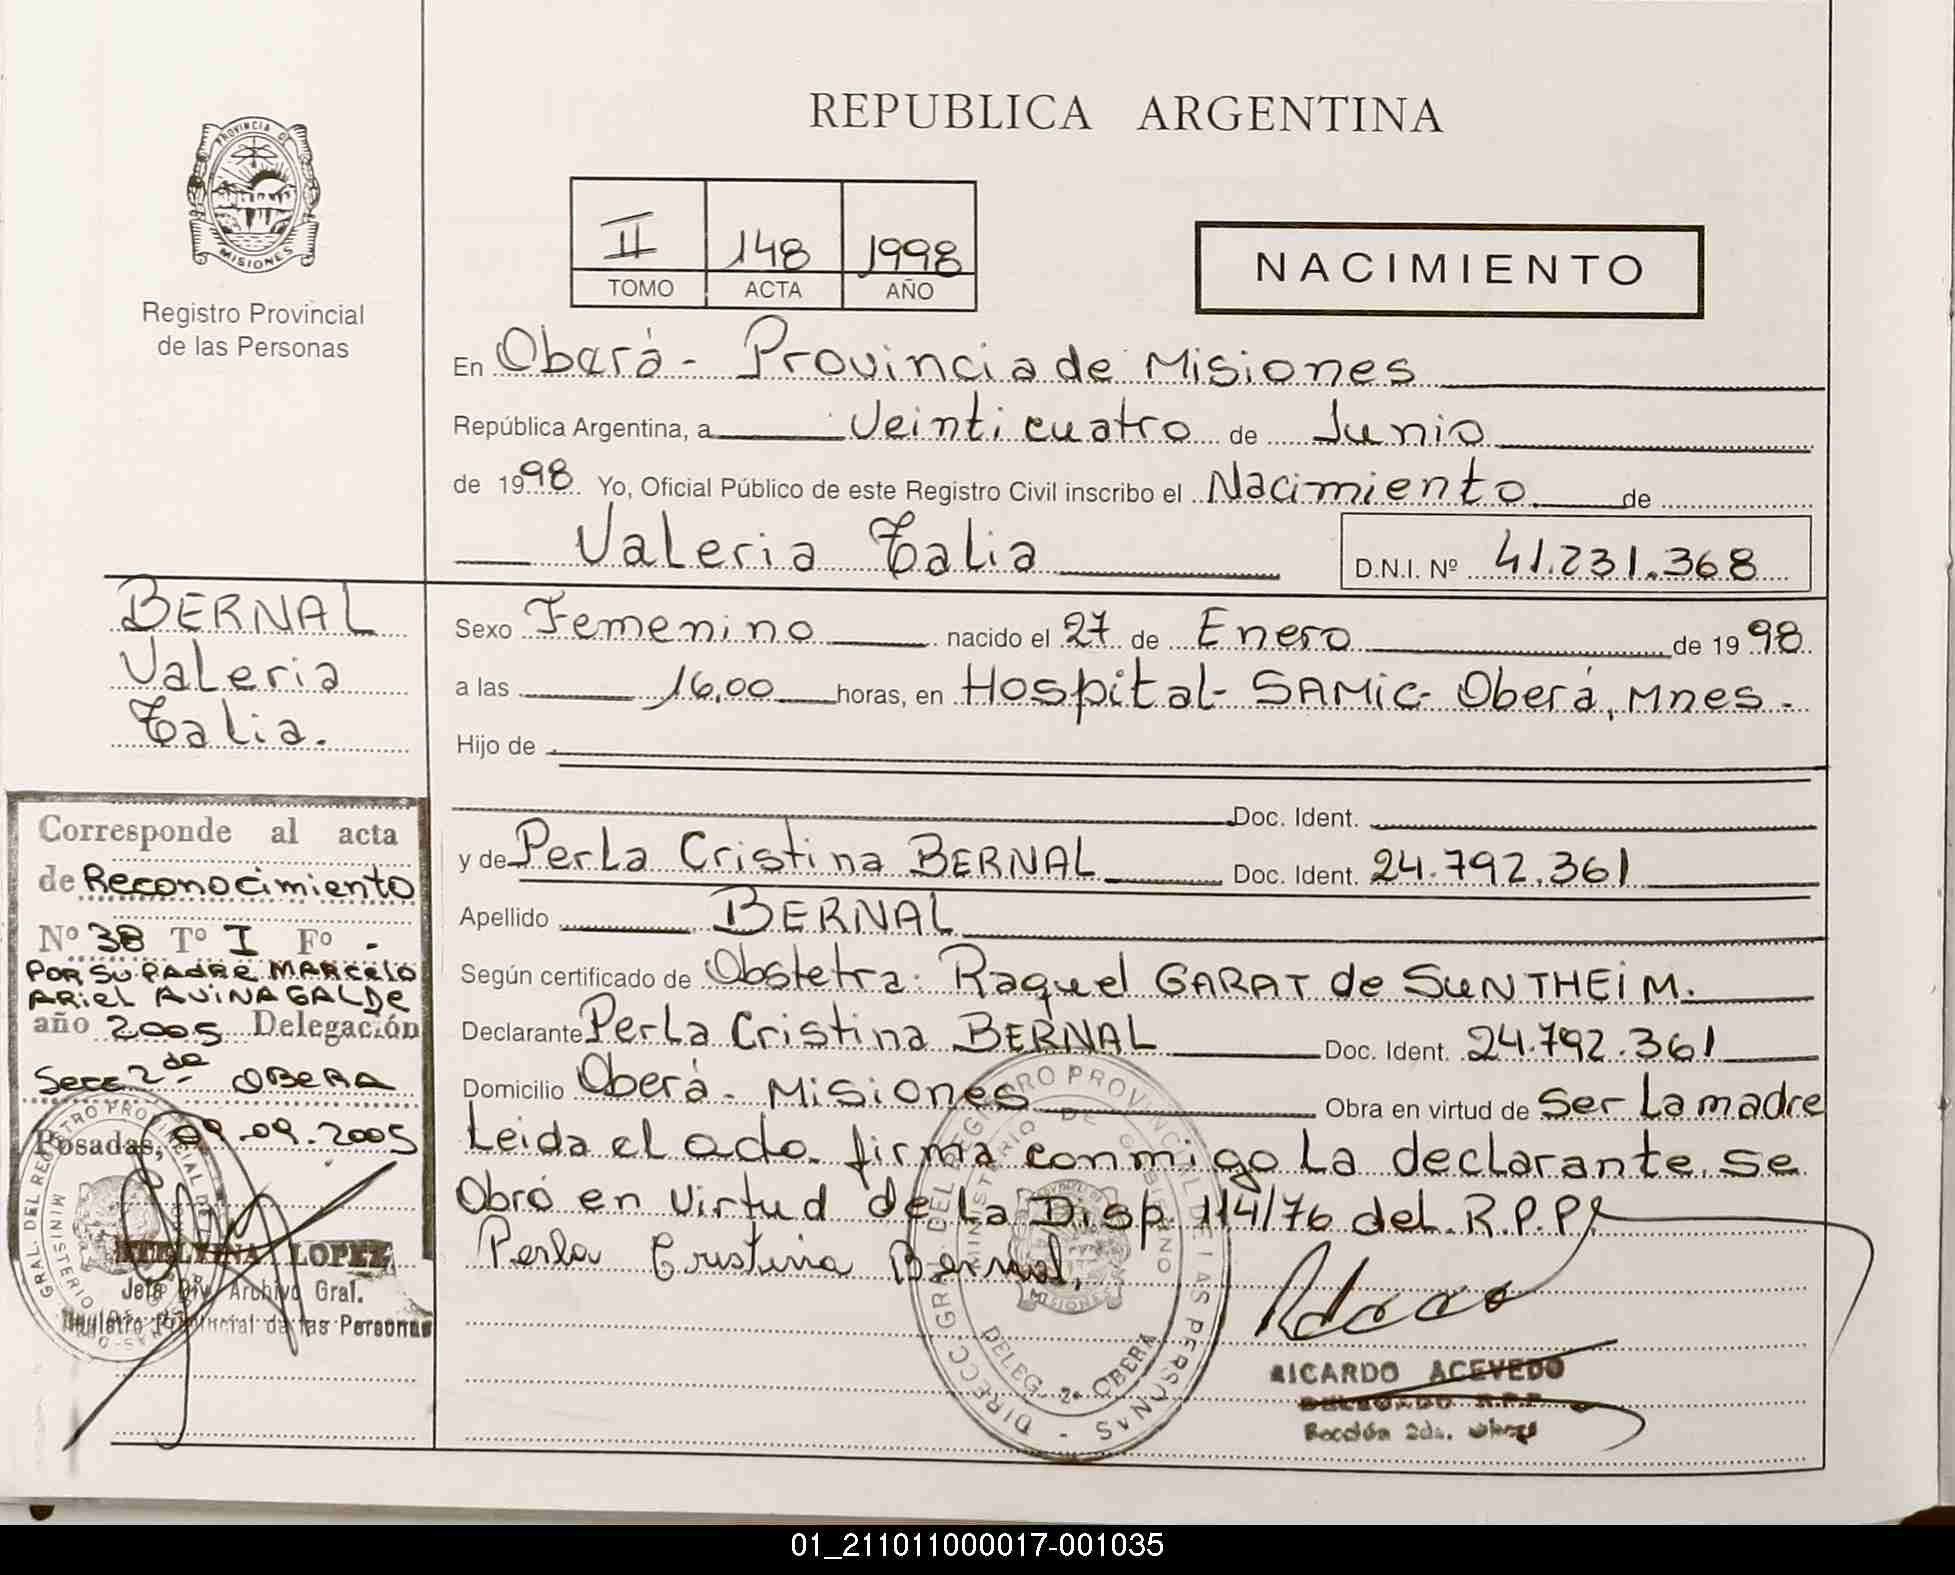 REPUBLICA ARGENTINA
PROVINCIA DE
MISIONES
Registro Provincial
de las Personas
II 148 1998
TOMO ACTA AÑO
NACIMIENTO
En Oberá - Provincia de Misiones
República Argentina, a Veinticuatro de Junio
de 1998. Yo, Oficial Público de este Registro Civil inscribo el Nacimiento de
Valeria Talia
D.N.I. Nº 41.231.368
BERNAL
Valeria
Talia.
Sexo Femenino nacido el 27 de Enero de 1998.
a las 16,00 horas, en Hospital- SAMIC- Oberá, Mnes.
Hijo de
Doc. Ident.
y de Perla Cristina BERNAL Doc. Ident. 24.792.361
Apellido BERNAL
Según certificado de Obstetra: Raquel GARAT de SUNTHEIM.
Declarante Perla Cristina BERNAL Doc. Ident. 24.792.361
Domicilio Oberá - Misiones Obra en virtud de Ser La madre
Leida el acto. firma conmigo La declarante. se
Obró en virtud de La Disp. 114/76 del R.P.P.
Perla Cristina Bernal
Corresponde al acta
de Reconocimiento
Nº 38 Tº I Fº -
POR SU PADRE MARCELO
ARIEL AVINAGALDE
año 2005 Delegación
Secc 2da OBERA
Posadas, 09.09.2005
LOPEZ
Jefe Div. Archivo Gral.
Registro Provincial de las Personas
DIRECC. GRAL. DEL REGISTRO PROVINCIAL DE LAS PERSONAS
MINISTERIO DE GOBIERNO
MISIONES
DELEG. 2ª OBERA
RICARDO ACEVEDO
DELEGADO R.P.P.
Sección 2da. Oberá
01_211011000017-001035